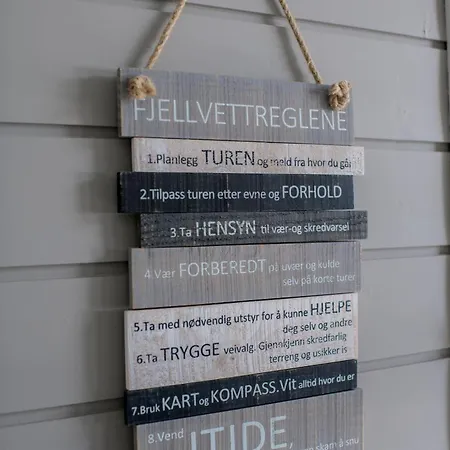 FJELLVETTREGLENE
1.Planlegg TUREN og meld fra hvor du går
2.Tilpass turen etter evne og FORHOLD
3.Ta HENSYN til vær-og skredvarsel
4.Vær FORBEREDT på uvær og kulde
selv på korte turer
5.Ta med nødvendig utstyr for å kunne HJELPE
deg selv og andre
6.Ta TRYGGE veivalg. Gjennkjenn skredfarlig
terreng og usikker is
7.Bruk KART og KOMPASS. Vit alltid hvor du er
8.Vend ITIDE,
skam å snu